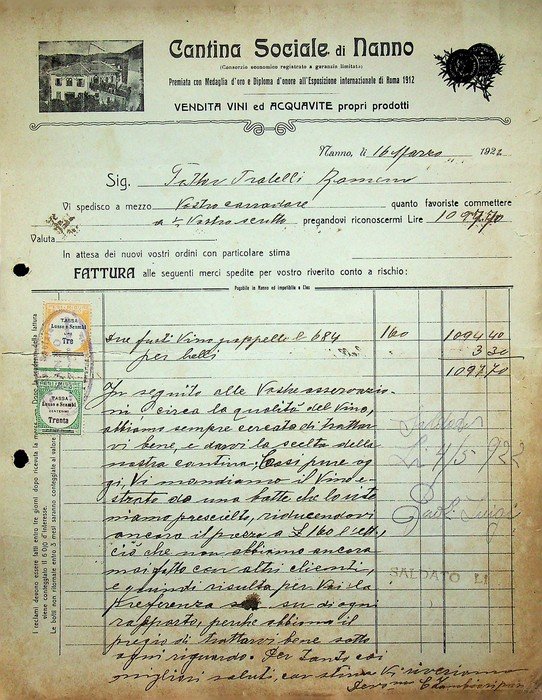 Cantina Sociale di Nanno
(Consorzio economico registrato a garanzia limitata)
Premiata con Medaglia d'oro e Diploma d'onore all'Esposizione internazionale di Roma 1912
VENDITA VINI ed ACQUAVITE propri prodotti
Nanno, li 16 Marzo 1922
Sig. Fratelli
Vi spedisco a mezzo Vostro carradore quanto favoriste commettere
a Vostro pregandovi riconoscermi Lire 1097,70
Valuta
In attesa dei nuovi vostri ordini con particolare stima
FATTURA alle seguenti merci spedite per vostro riverito conto a rischio:
Pagabile in Nanno ed imperibile a Cles
TASSA
Lusso e Scambi
Tre
fusti Vino l 684 160 1094 40
per bolli 3 30
1097 70
TASSA
Lusso e Scambi
CENTESIMI
Trenta
In seguito alle Vostre asserazio
ni circa la qualità del Vino,
abbiamo sempre cercato di trattar
vi bene, e darvi la scelta della
nostra cantina; Così pure og
gi, Vi mandiamo il Vino e
strato da una botte che
niamo prescielto, riducendovi
ancora il prezzo a £ 160 l'ett
ciò che non abbiamo ancora
mai fatto con altri clienti,
e quindi risulta per Voi la
preferenza su di ogni
rapporto, perchè abbiamo il
pregio di trattarvi bene sotto
ogni riguardo. Per tanto coi
migliori saluti, con stima Vi riveriamo
4/5 922
SALDATO LI
I reclami devono essere fatti entro tre giorni dopo ricevuta la merce.
viene conteggiato il 6 0|0 d'interesse.
Le botti non ritornate entro 3 mesi saranno conteggiate al valore
della fattura